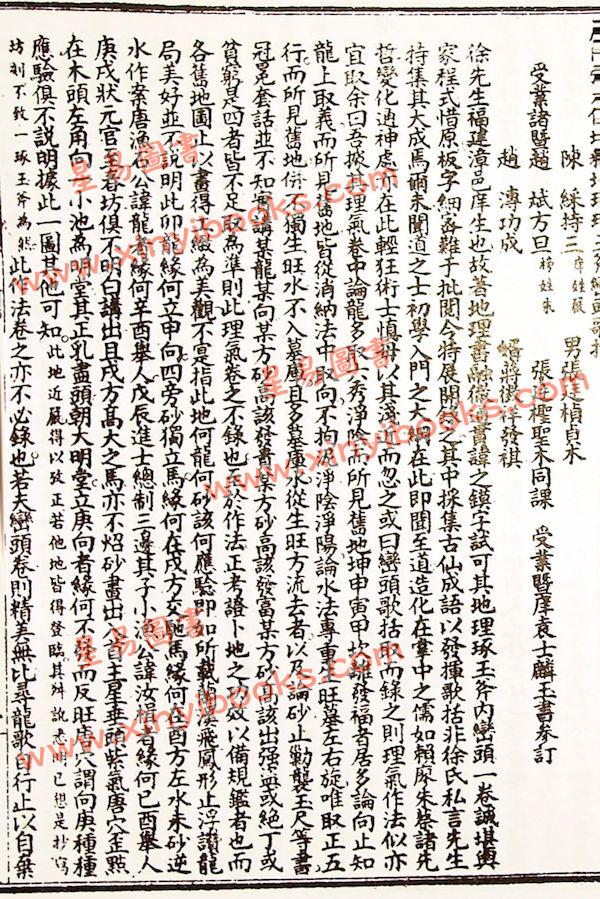 陳 綵持三 男張廷楨貞木
受業諸暨趙 斌方旦榜姓朱 張廷 聖木同課 受業暨庠袁士麟玉書參訂
趙 溥功成 婿蔣 梓發祺
徐先生福建漳邑庠生也故著地理書融徹 貫諱之鏌字試可其地理琢玉斧內巒頭一卷誠堪輿
家程式惜原板字細客難于批閱今特展開 之其中採集古仙成語以發揮歌括非徐氏私言先生
待集其大成焉爾未聞道之士初學入門之大綱在此即聞至道造化在掌中之儒如賴廖朱蔡諸先
哲變化通神處亦在此輕狂術士慎毋以其淺近而忽之或曰巒頭歌括取而錄之則理氣作法似亦
宜取余曰吾披其理氣卷中論龍多取六秀淨陰而所見舊地坤申寅甲坎離發福者居多論向止知
龍上取義而所見舊地皆從消納法中取向不拘淨陰淨陽論水法專重生旺墓左右旋唯取正五
行而所見舊地併不獨生旺水不入墓庫且多墓庫水從生旺方流去者以及論砂止勦襲玉尺等書
冠冕套話並不知專講某龍某向某方砂高該發貴某方砂高該發富某方砂高該出强 或絕丁或
貧窮是四者皆不足取為準則此理氣卷之不錄也至於作法正考證卜地之功效以備規鑑者也而
各舊地圖止以畫得止做為美觀不寔指此地何龍何砂該何應驗即如所載蒲溪飛鳳形止浮讚龍
局美好並不說明此卯龍緣何立申向四旁砂獨立馬緣何在戌方交馳馬緣何在酉方左水来砂逆
水作案唐漁石公諱龍者緣何辛酉舉人戊辰進士總制三邊其子小漁公諱汝楫者緣何己酉舉人
庚戌狀元官至春坊俱不明白講出且戌方高大之馬亦不炤砂畫出穴首主星垂頭紫氣唐穴歪點
在木頭左角向一小池為明堂其正乳盡頭朝大明堂立庚向者緣何不發而反旺唐穴謂向庚種種
應驗俱不說明據此一圖其他可知此地近嚴得以攷正若他地皆得登臨其舛訛未明已想是抄寫
坊刻不致一琢玉斧為然此作法卷之亦不必錄也若夫巒頭卷則精美無比尋龍歌 行止以自棄
星易圖書
www.xinyibooks.com
星易圖書
www.xinyibooks.com
星易圖書
www.xinyibooks.com